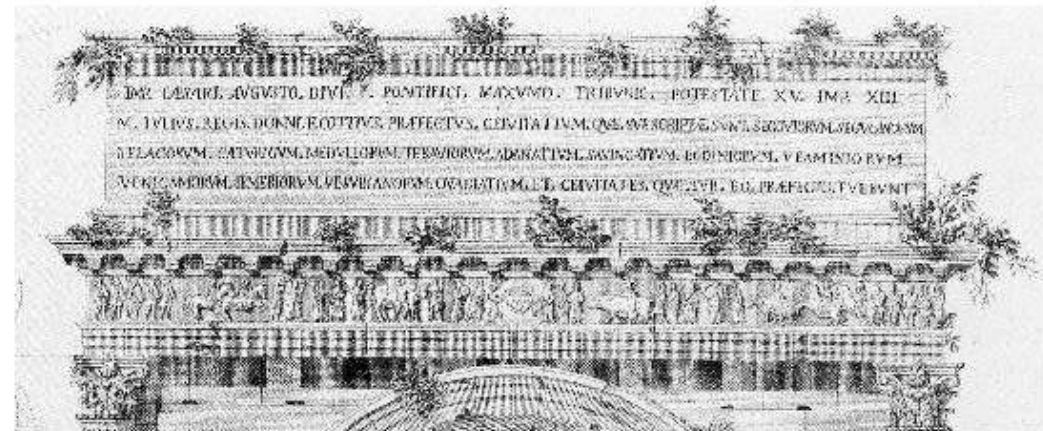 IMP. CAESARI. AVGVSTO. DIVI. F. PONTIFICI. MAXVMO. TRIBVNIC. POTESTATE. XV. IMP. XIII
M. IVLIVS. REGIS. DONNI. F. COTTIVS. PRÆFECTVS. CEIVITATIVM. QVÆ. SVBSCRIPTÆ. SVNT. SEGOVIORVM. SEGVSINORVM
BELACORVM. CATVRIGVM. MEDVLLORVM. TEBAVIORVM. ADANATIVM. SAVINCATIVM. EGDINIORVM. VEAMINIORVM
VENICAMORVM. IEMERIORVM. VESVBIANORVM. QVADIATIVM. ET. CEIVITATES. QVÆ. SVB. EO. PRÆFECTO. FVERVNT